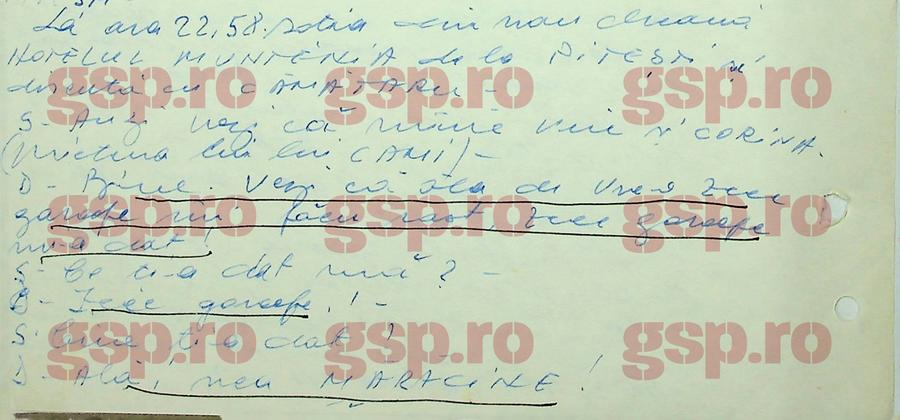 La ora 22,58. soția din nou cheamă
HOTELUL MUNTENIA de la PITEȘTI și
discută cu CĂMĂTARU -
S- Auzi vezi că mîine vine și CORINA.
(prietena lui lui CAMI) -
D- Bine. Vezi că ăla de vreo zece
garoafe mi făcu rost, zece garoafe
mi-a dat!
S- Ce ți-a dat mă? -
D- Zece garoafe! -
S. Cine ți-a dat?
D- Ăla, nea MĂRĂCINE!
gsp.ro gsp.ro gsp.ro
gsp.ro gsp.ro gsp.ro
gsp.ro gsp.ro gsp.ro
gsp.ro gsp.ro gsp.ro